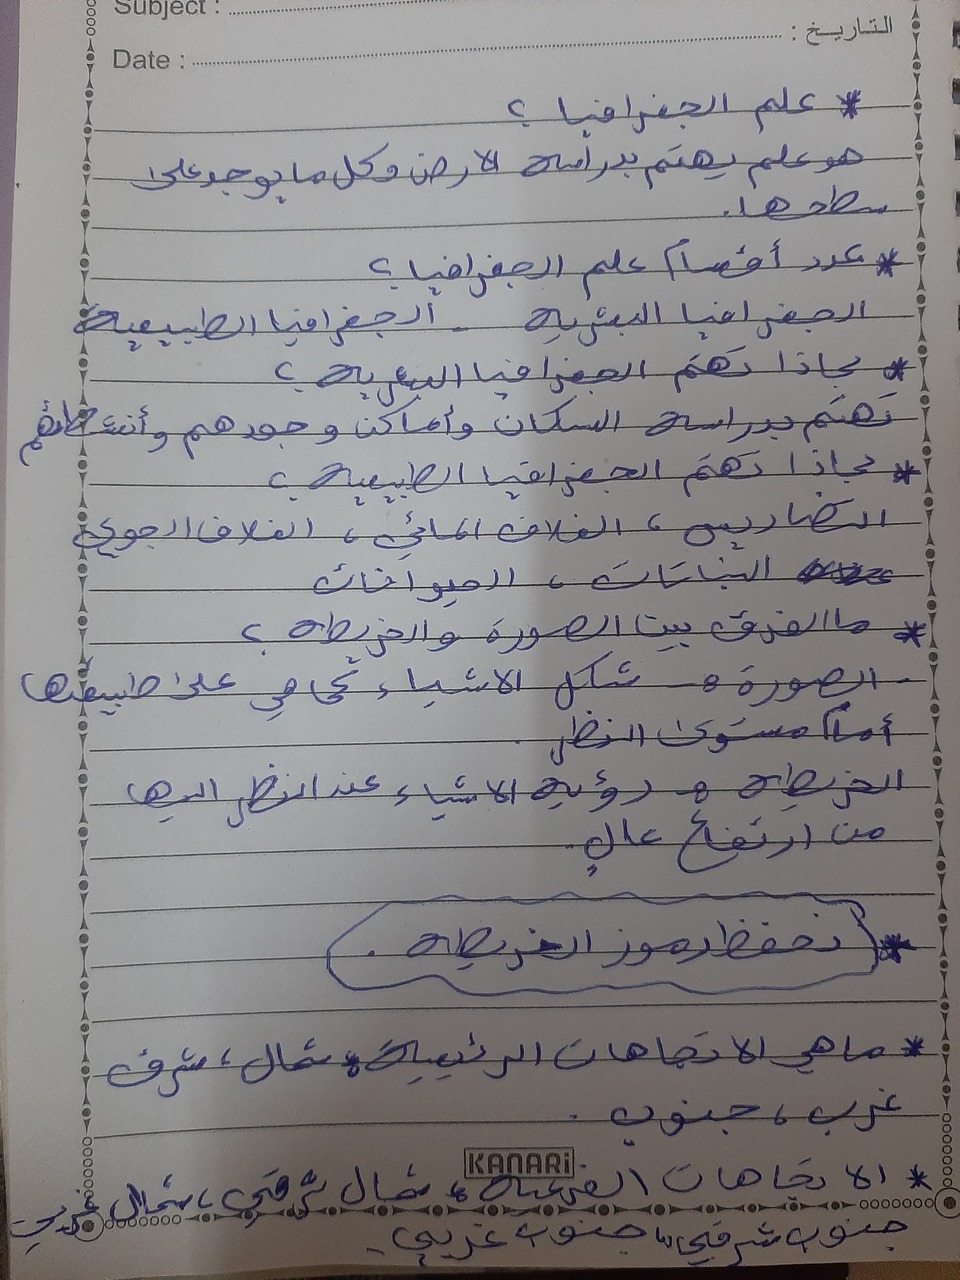 Subject :
التاريخ :
Date :
* علم الجغرافيا ؟
هو علم يهتم بدراسة الارض وكل ما يوجد على
سطحها.
* عدد أقسام علم الجغرافيا ؟
الجغرافيا البشرية - الجغرافيا الطبيعية
* بماذا تهتم الجغرافيا البشرية ؟
تهتم بدراسة السكان وأماكن وجودهم وأنشطتهم
* بماذا تهتم الجغرافيا الطبيعية ؟
التضاريس ، الغلاف المائي ، الغلاف الجوي
النباتات ، الحيوانات
* ما الفرق بين الصورة والخريطة ؟
- الصورة : شكل الاشياء كما هي على طبيعتها
أمام مستوى النظر .
الخريطة : رؤية الاشياء عند النظر اليها
من ارتفاع عالٍ .
* نحفظ رموز الخريطة .
* ما هي الاتجاهات الرئيسية : شمال ، شرق
غرب ، جنوب .
KANARi
* الاتجاهات الفرعية : شمال شرقي ، شمال غربي
جنوب شرقي ، جنوب غربي .